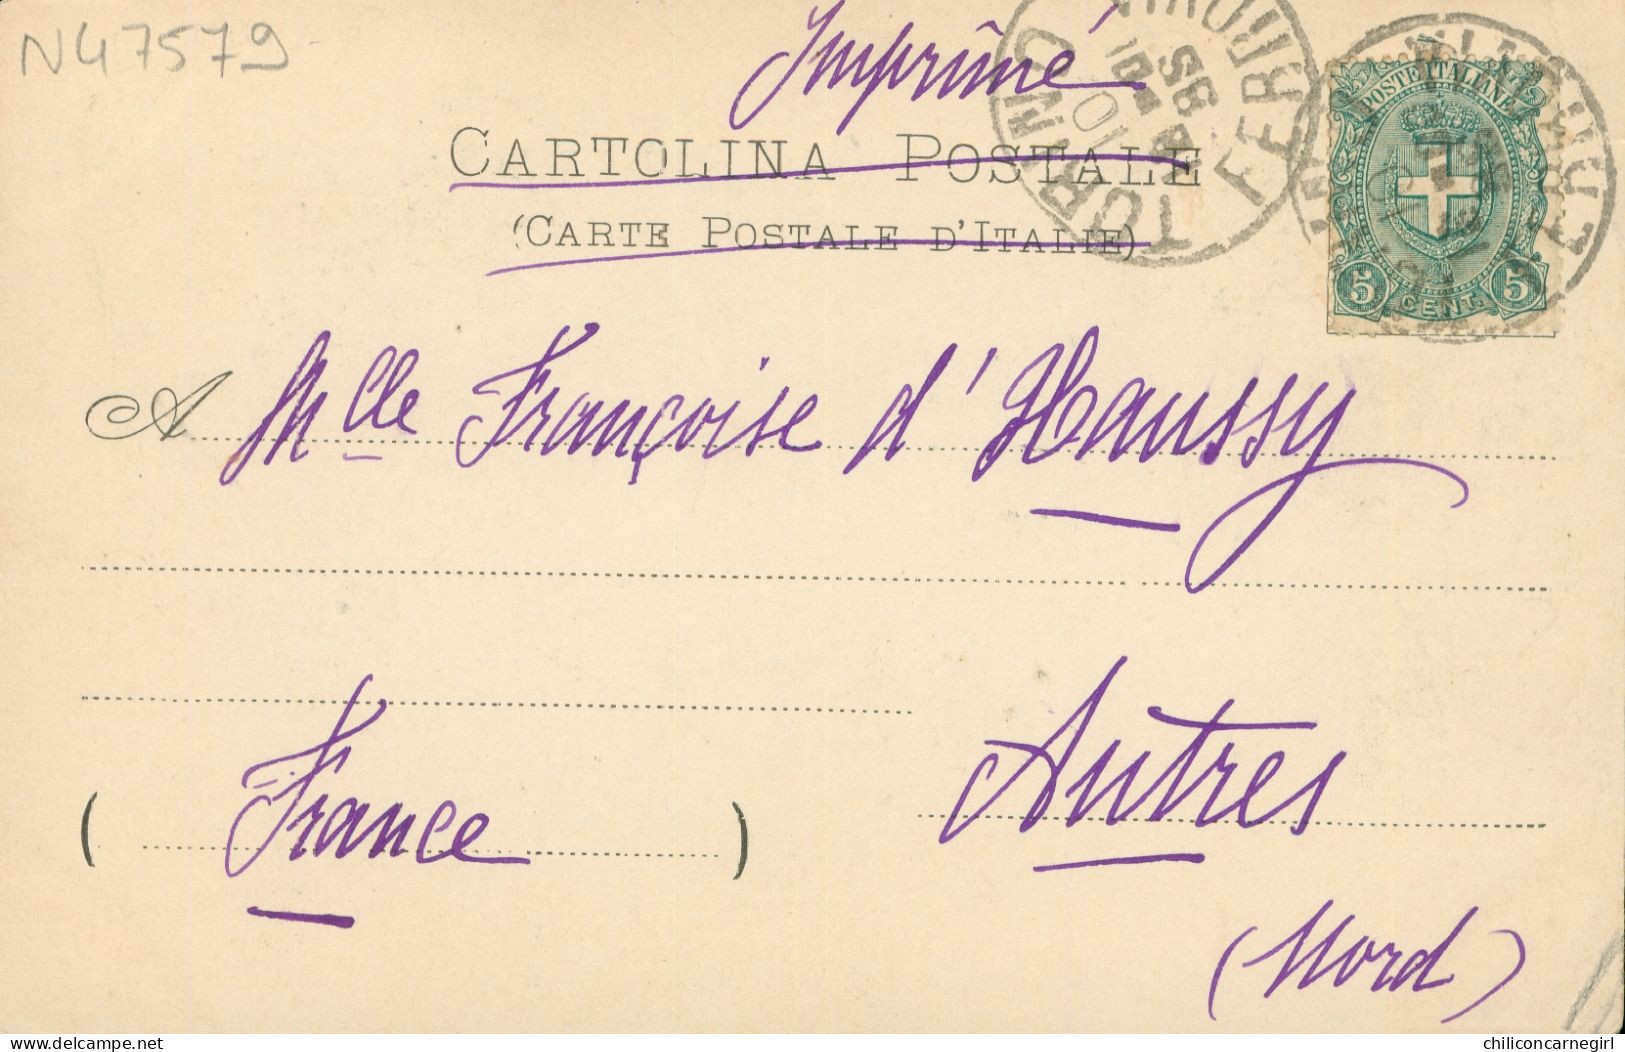 N47579
Imprimé
CARTOLINA POSTALE
(CARTE POSTALE D'ITALIE)
TORINO
FERROVIA
10
98
POSTE ITALIANE
5 CENT. 5
A Mlle Françoise d'Haussy
Autres
(France)
(Nord)
delcampe.net
chiliconcarnegirl